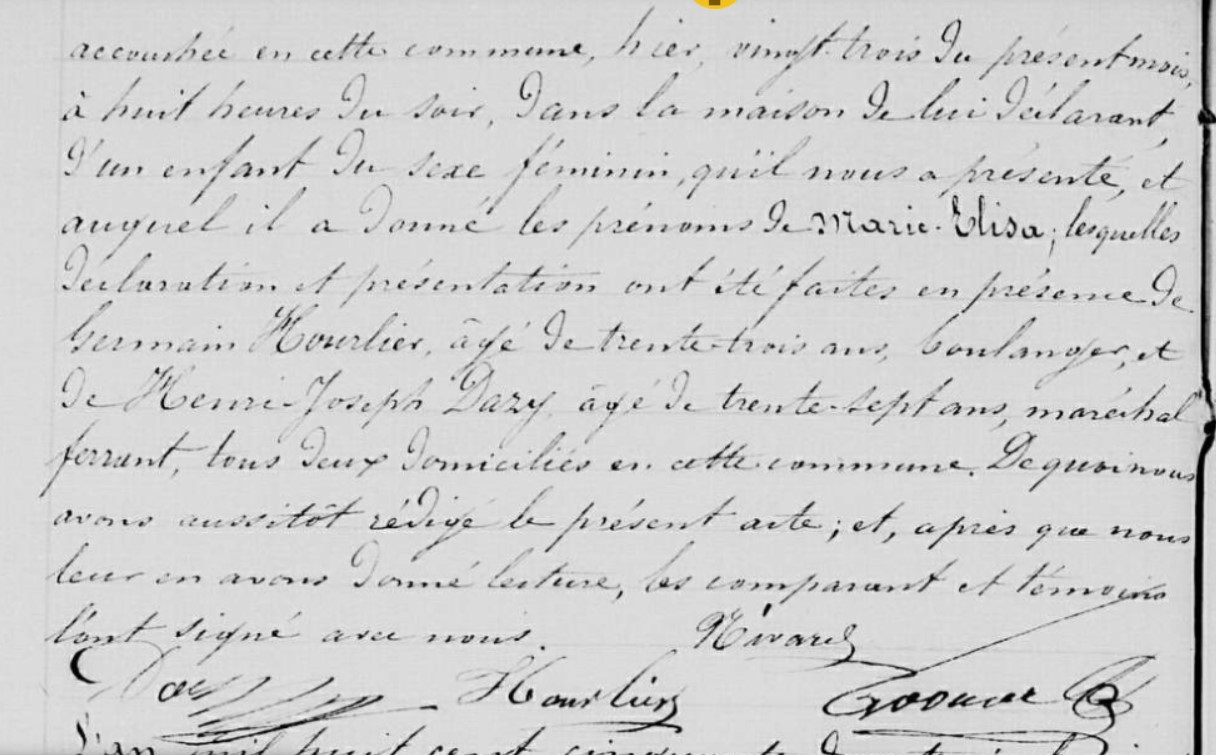 accouchée en cette commune, hier, vingt-trois du présent mois,
à huit heures du soir, dans la maison de lui déclarant,
d'un enfant du sexe féminin, qu'il nous a présenté, et
auquel il a donné les prénoms de Marie-Elisa; lesquelles
déclaration et présentation ont été faites en présence de
Germain Hourlier, âgé de trente-trois ans, boulanger, et
de Henri-Joseph Dazy, âgé de trente-sept ans, maréchal
ferrant, tous deux domiciliés en cette commune. De quoi nous
avons aussitôt rédigé le présent acte; et, après que nous
leur en avons donné lecture, les comparant et témoins
l'ont signé avec nous.
Hourlier
L'an mil huit cent